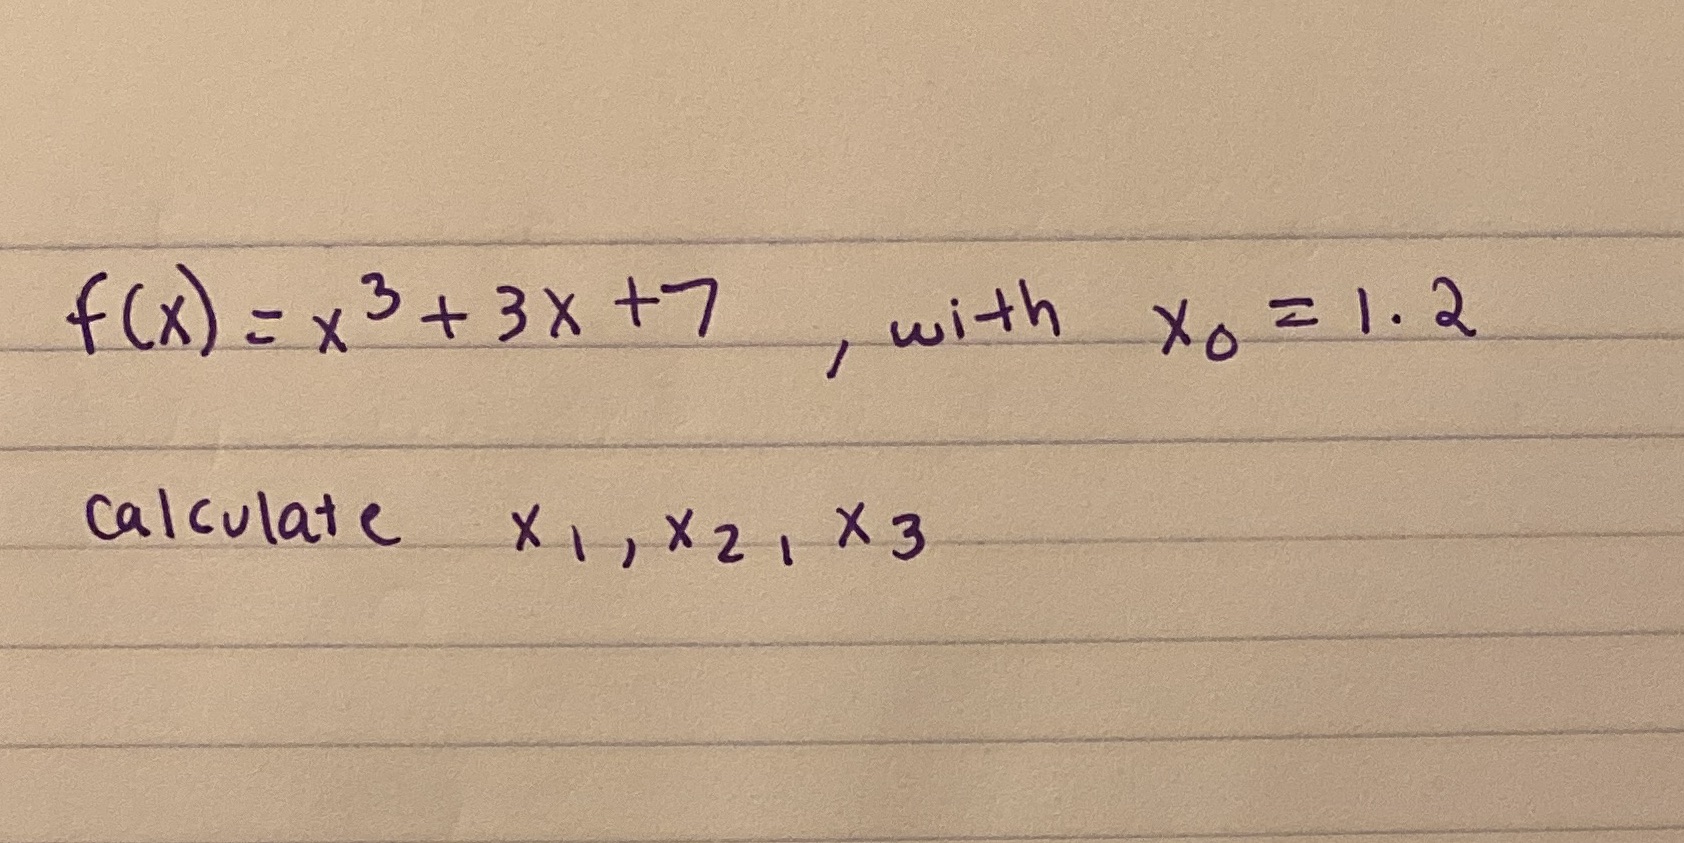 f(x) = x³ + 3x + 7 , with x₀ = 1.2
calculate x₁, x₂, x₃